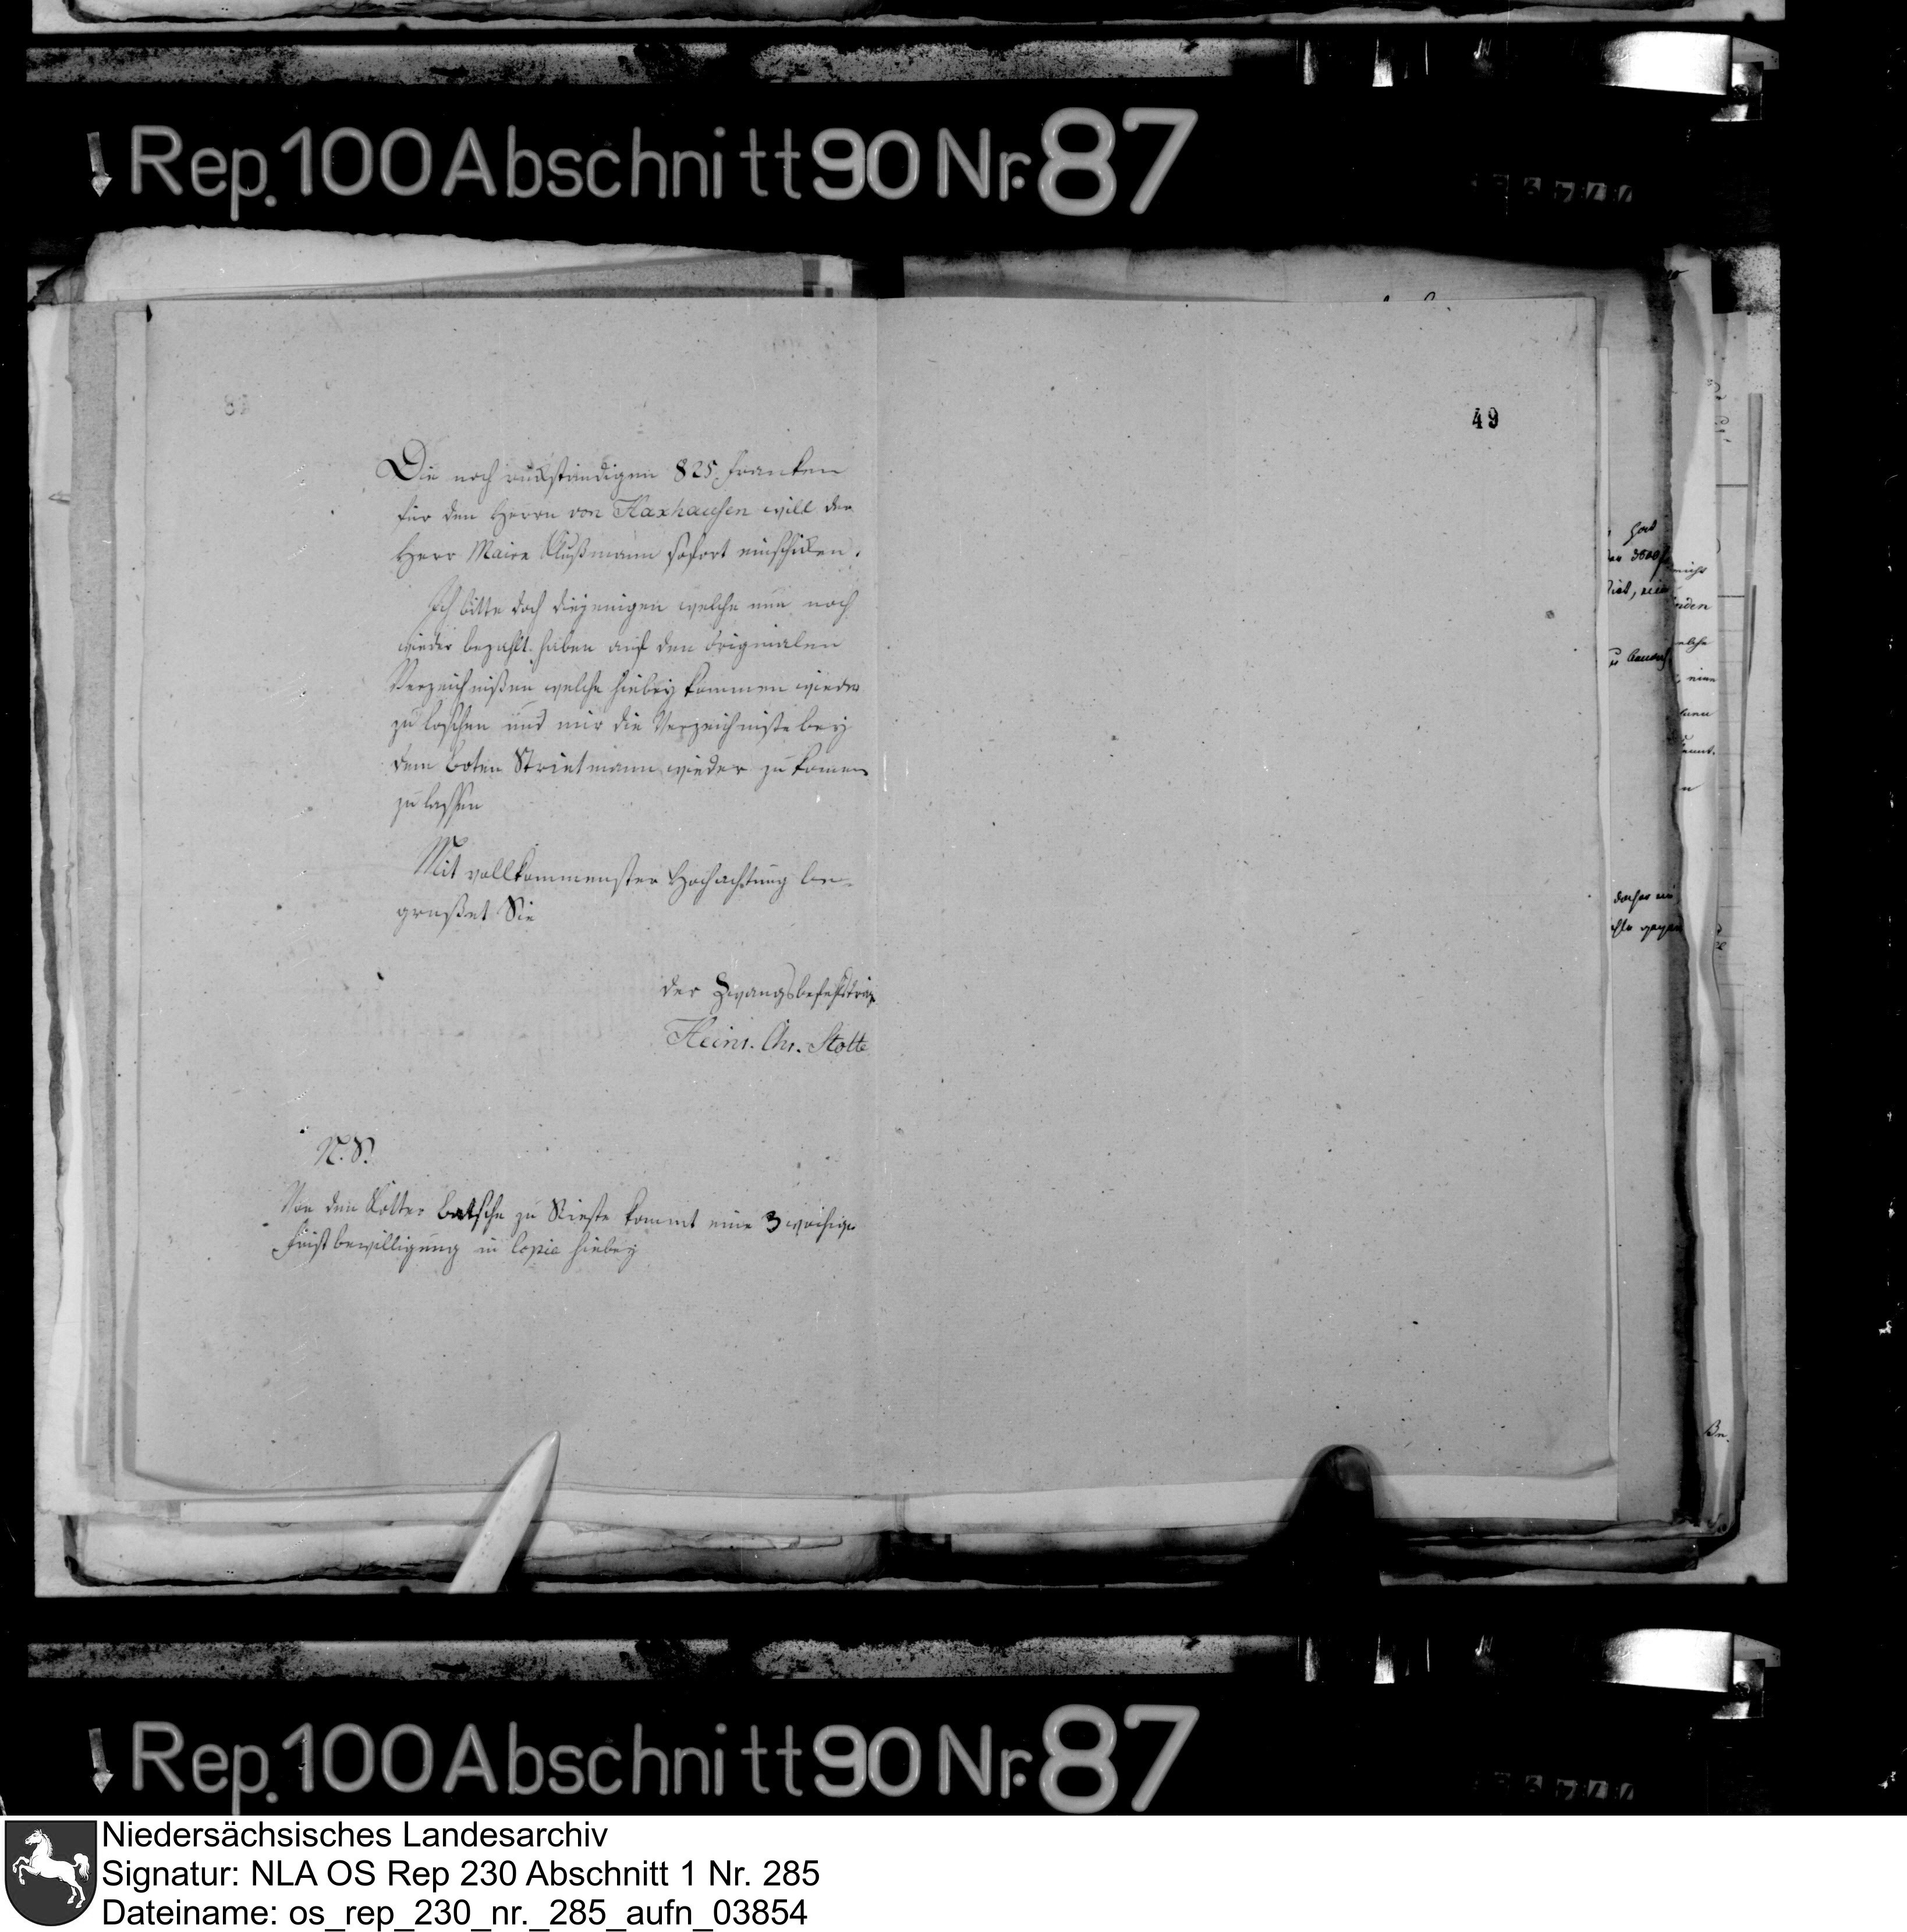 Rep. 100 Abschnitt 90 Nr. 87
49
Die noch rückständigen 825 Franken
für den Herrn von Haxhausen will der
Herr Maire Klußmann sofort einschicken.
Ich bitte doch diejenigen welche nun noch
wieder bezahlt haben auf den Originalen
Verzeichnißen welche hiebey kommen wieder
zu loschen und mir die Verzeichniste bey
dem boten Strietmann wieder zu komen
zu lassen
Mit vollkommenster Hochachtung be-
grüßet Sie
der Zwangsbefehlsträg
Heinr. Chr. Stotte
N. S.
Von den Kotter batsche zu Rieste kommt eine 3 wochige
Fristbewilligung in Copia hiebey
Rep. 100 Abschnitt 90 Nr. 87
Niedersächsisches Landesarchiv
Signatur: NLA OS Rep 230 Abschnitt 1 Nr. 285
Dateiname: os_rep_230_nr._285_aufn_03854